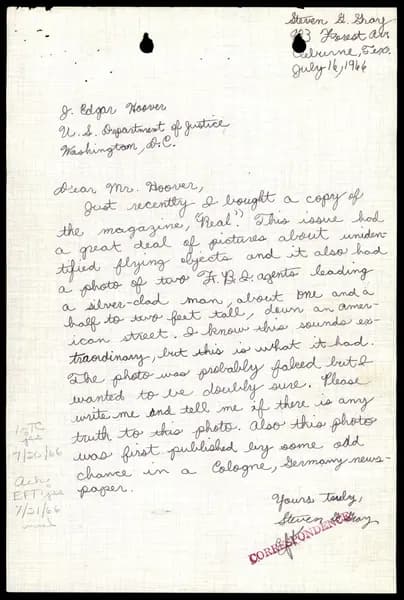 Steven G. Gray
Forest Av
Cleburne, Tex.
July 16, 1966
J. Edgar Hoover
U. S. Department of Justice
Washington, D.C.
Dear Mr. Hoover,
Just recently I bought a copy of
the magazine, "Real". This issue had
a great deal of pictures about uniden-
tified flying objects and it also had
a photo of two F.B.I. agents leading
a silver-clad man, about one and a
half to two feet tall, down an amer-
ican street. I know this sounds ex-
traordinary, but this is what it had.
The photo was probably faked but I
wanted to be doubly sure. Please
write me and tell me if there is any
truth to this photo. Also this photo
was first published by some odd
chance in a Cologne, Germany news-
paper.
7/20/66
7/21/66
Yours truly,
Steven G. Gray
CORRESPONDENCE